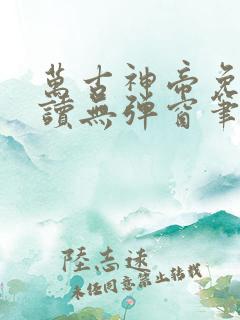 萬古神帝免
讀無彈窗筆
陸志遠
未经同意禁止转载